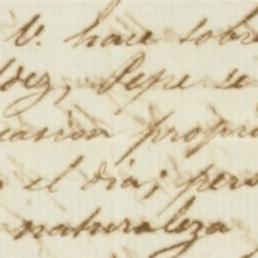 V. hace sobre
dez, Pepe se
casion propi
el dia; pero
naturaleza